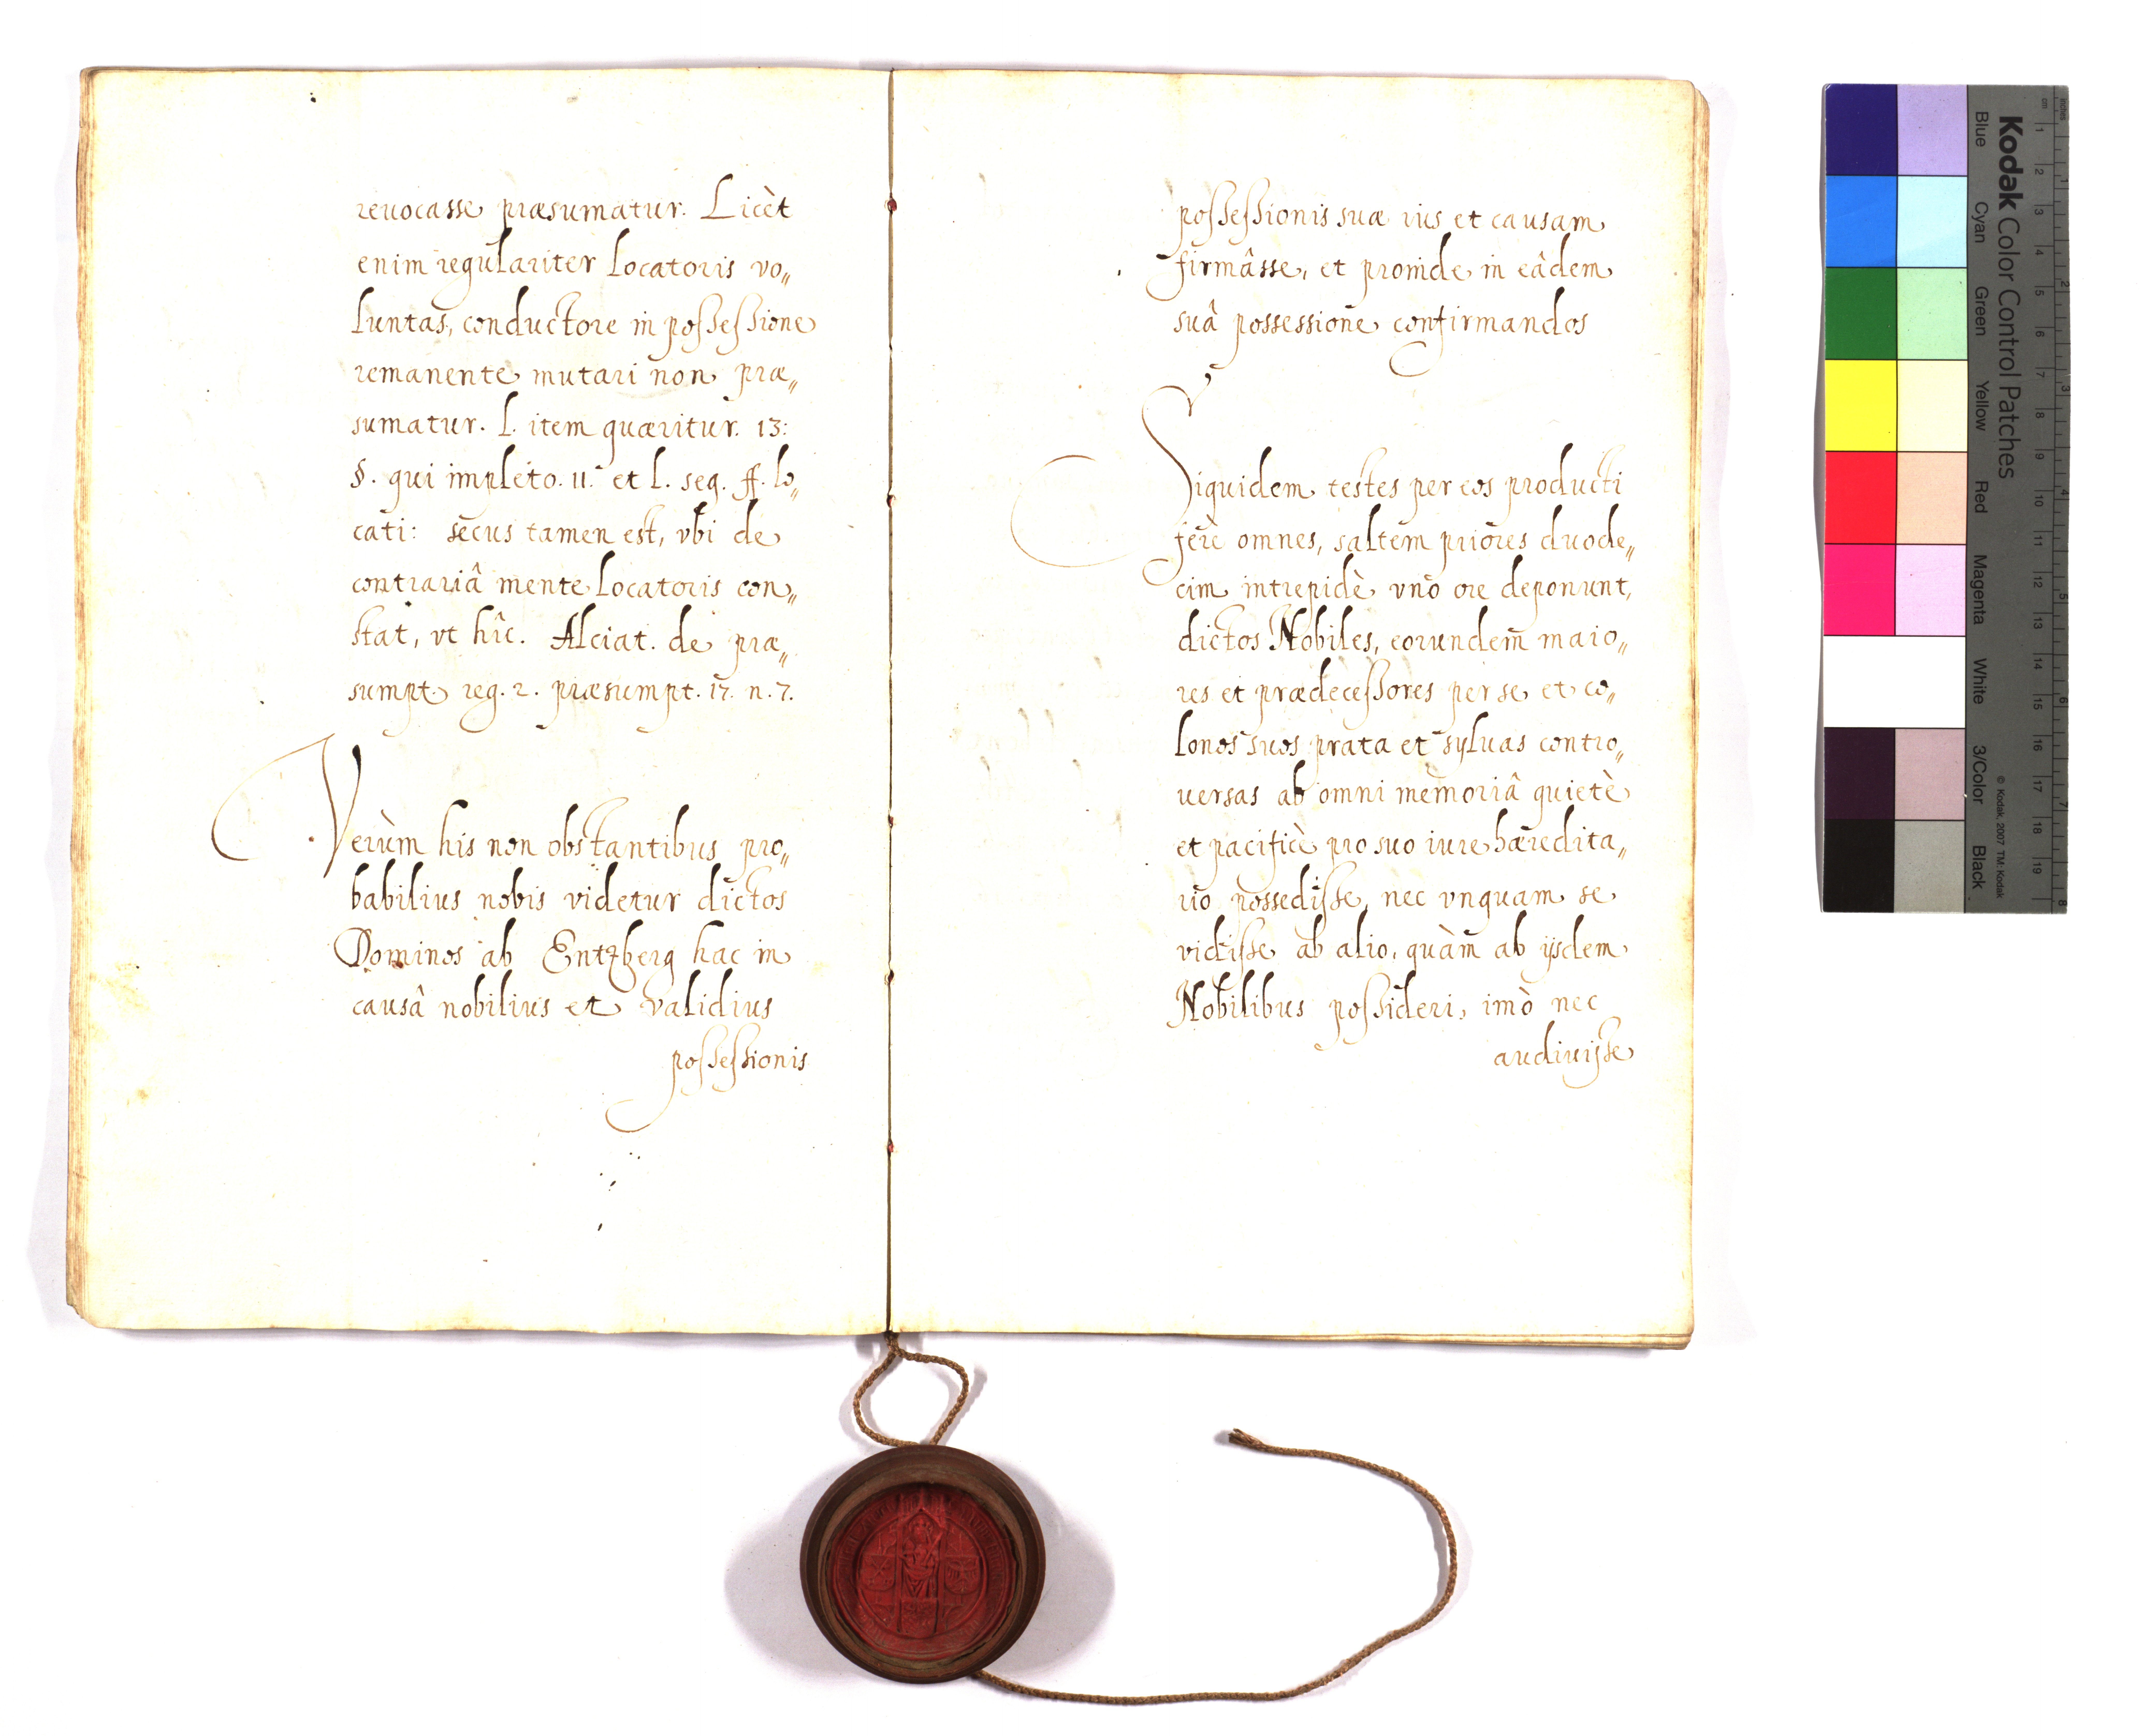 reuocasse præsumatur. Licèt
enim regulariter Locatoris vo„
luntas, conductore in possessione
remanente mutari non præ„
sumatur. l. item quæritur. 13:
§. qui impleto. 11. et l. seq. ff. lo„
cati: secus tamen est, vbi de
contrariâ mente Locatoris con„
stat, vt hîc. Alciat. de præ„
sumpt. reg. 2. præsumpt. 17. n. 7.
Verùm his non obstantibus pro„
babilius nobis videtur dictos
Dominos ab Entzberg hac in
causâ nobilius et validius
possessionis
possessionis suæ ius et causam
firmâsse, et proinde in eâdem
suâ possessione confirmandos
Siquidem testes per eos producti
ferè omnes, saltem priores duode„
cim intrepidè vno ore deponunt,
dictos Nobiles, eorundem maio„
res et prædecessores per se et co„
lonos suos prata et syluas contro„
uersas ab omni memoriâ quietè
et pacificè pro suo iure hæredita„
rio possedisse, nec vnquam se
vidisse ab alio, quàm ab ijsdem
Nobilibus possideri, imò nec
audiuisse
Kodak Color Control Patches
Blue
Cyan
Green
Yellow
Red
Magenta
White
3/Color
Black
© Kodak, 2007 TM: Kodak
cm 1 2 3 4 5 6 7 8 9 10 11 12 13 14 15 16 17 18 19
inches 1 2 3 4 5 6 7 8